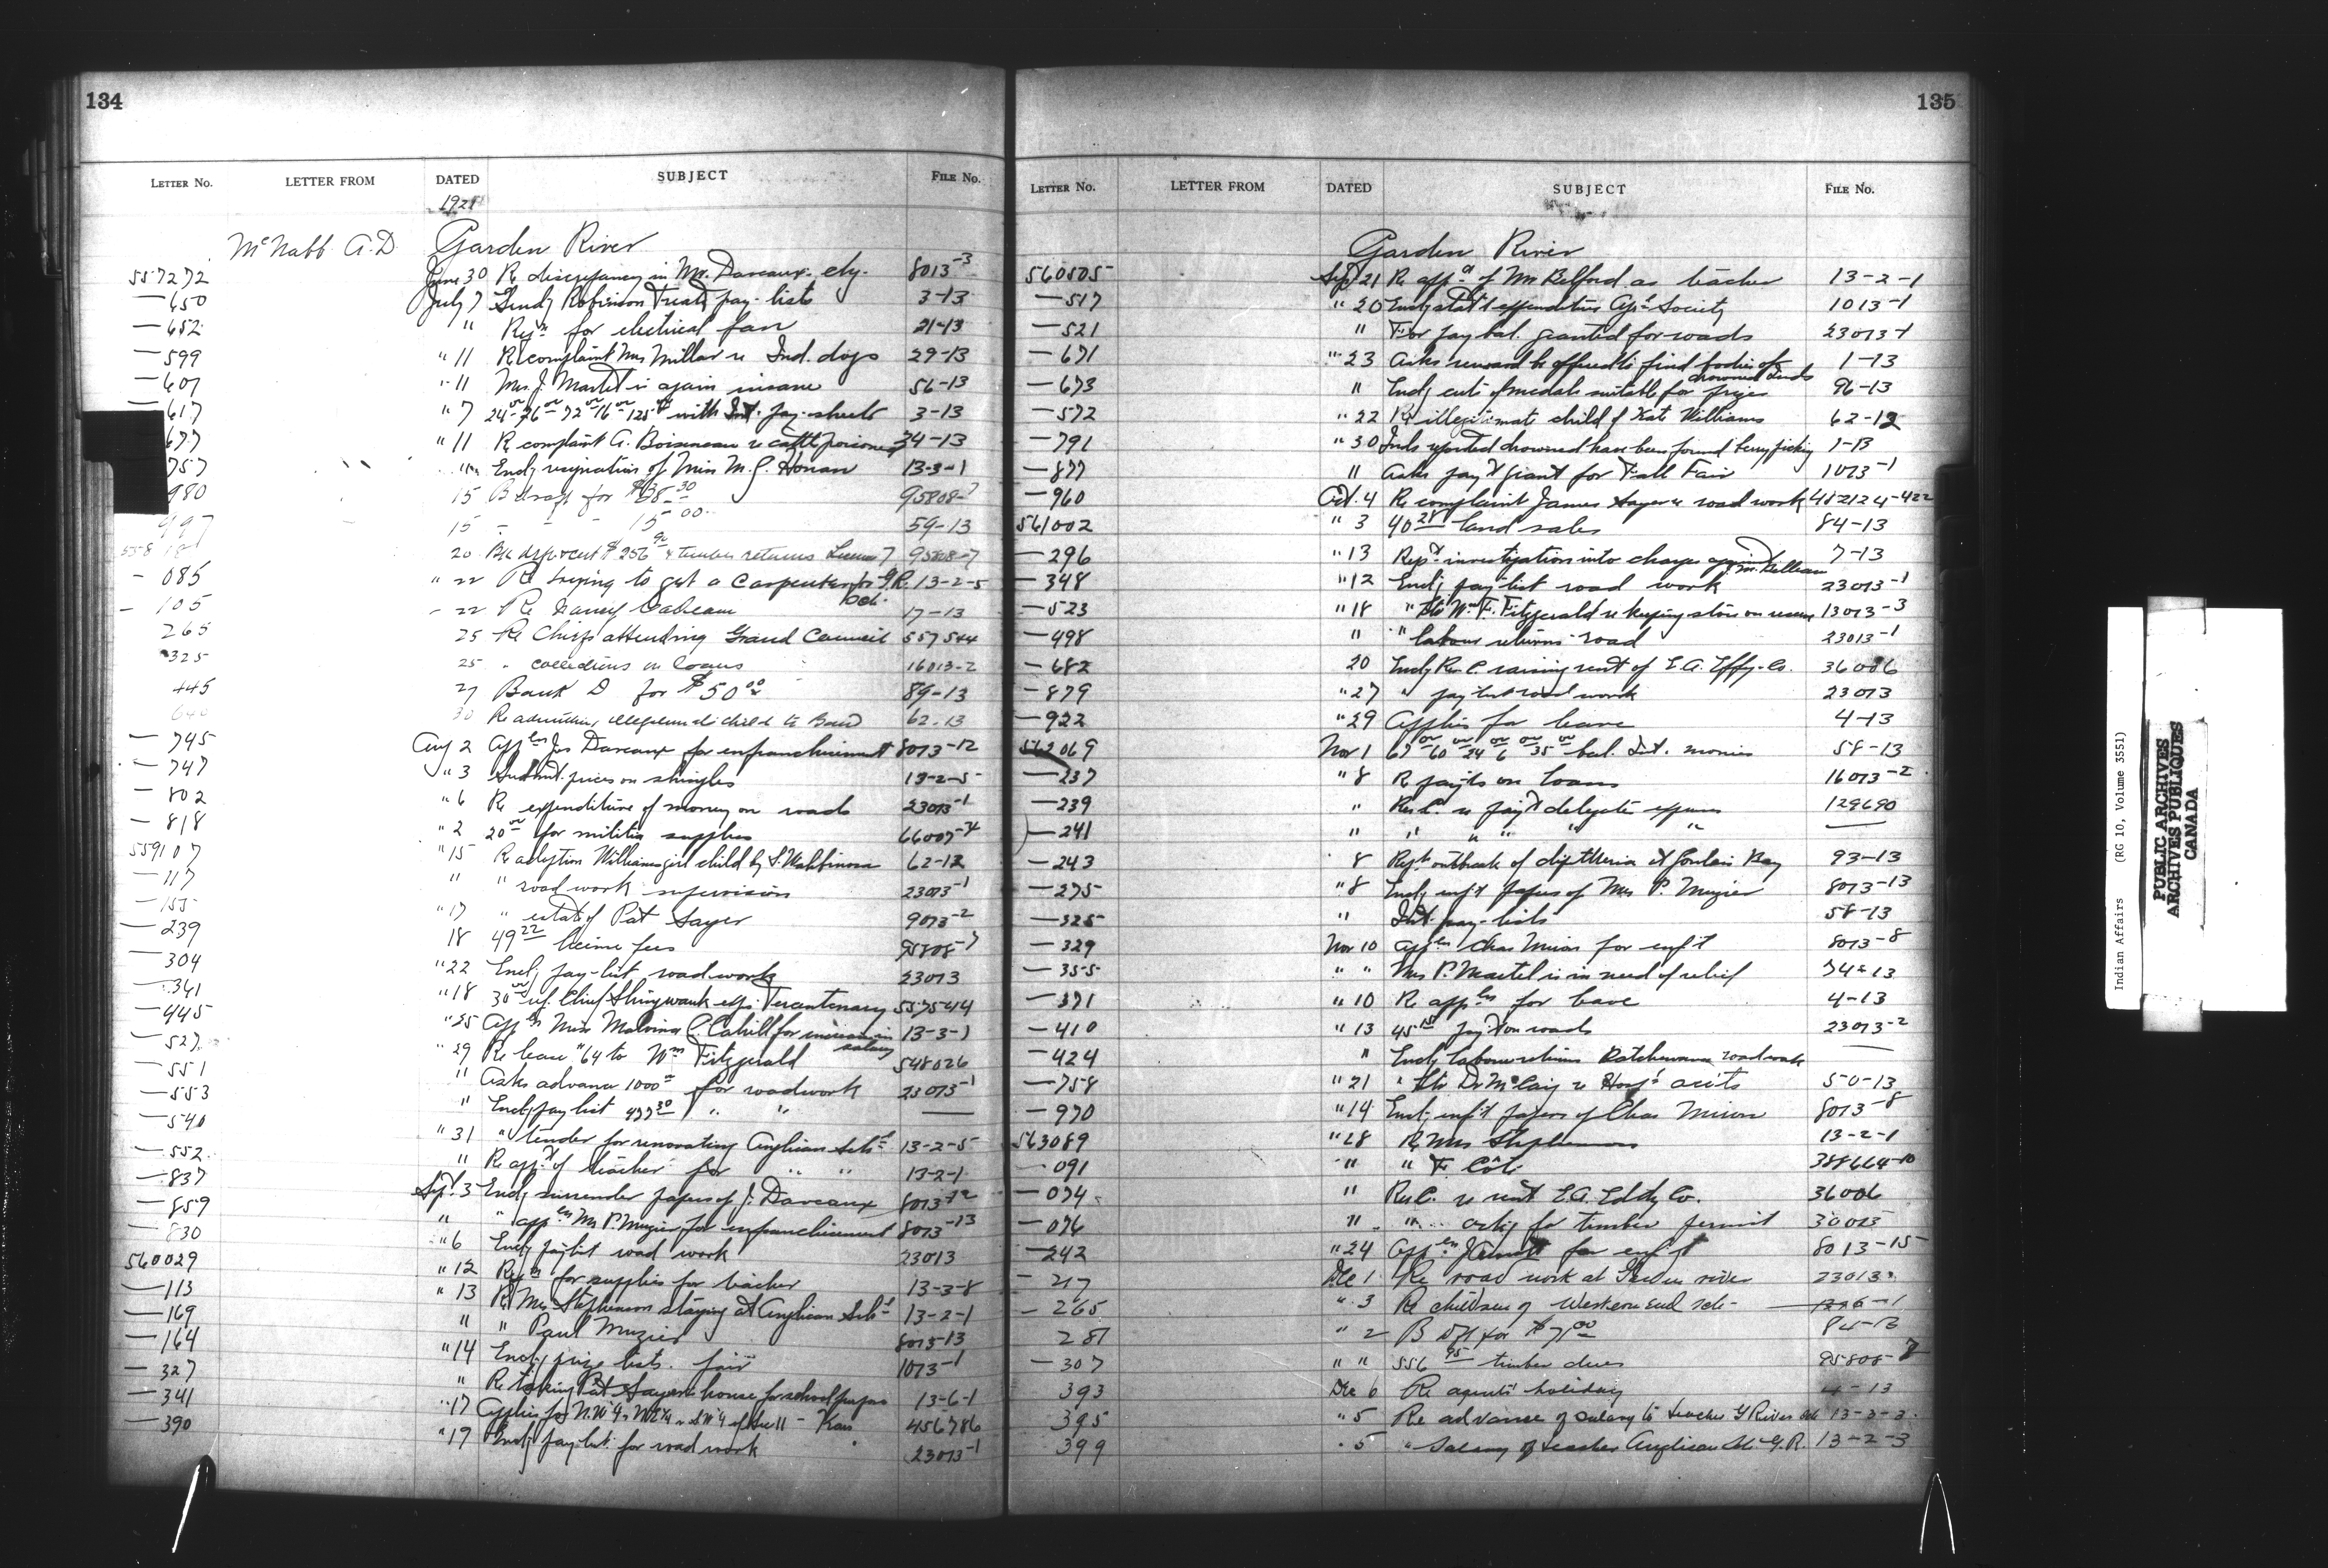 134
LETTER No. LETTER FROM DATED SUBJECT FILE No.
1921
McNabb A.D. Garden River
557272 June 30 Re discrepancy in Mr. Daveaux ety. 8013-3
—650 July 7 Sends Robinson Treaty pay-lists 3-13
—652 " Reqn for electrical fan 21-13
—599 " 11 Re complaint Mrs Millar re Ind. dogs 29-13
—607 " 11 Mrs. J. Martel is again insane 56-13
—617 " 7 24 00 76 00 72 00 16 00 125 00 with Int. pay-sheets 3-13
677 " 11 R complaint A. Boisseneau re cattle poisoned 34-13
757 " Encl resignation of Miss M. G. Honan 13-3-1
980 15 B draft for $38.30 95808-7
997 15 - - - 15 00 59-13
20 256 90 & timber returns License 7 95808-7
- 085 " 22 Re trying to get a Carpenter for G.R. Sch. 13-2-5
- 105 - 22 Re 17-13
265 25 Re Chiefs attending Grand Council 557544
325 25 " collections on loans 16013-2
445 27 Bank D for $50 00 89-13
640 30 Re child to Band 62-13
— 745 Aug 2 Appln Jos Daveaux for enfranchisement 8013-12
— 747 " 3 Submit. prices on shingles 13-2-5
— 802 " 6 Re expenditure of money on roads 23013-1
— 818 " 2 20 00 for militia supplies 66007-34
559107 " 15 Re adoption Williams girl child by S. 62-12
— 117 " " road work supervision 23013-1
— 155 " 17 " estate of Pat Sayer 9013-2
— 239 18 49 22 license fees 95808-7
— 304 " 22 Encl pay-list roadwork 23013
— 361 " 18 30 00 Chief Shingwauk exp. Tercentenary 557544
— 445 " 25 Appln Miss Malvina C. Cahill for increase in salary 13-3-1
— 527 " 29 Re lease "64 to Wm Fitzgerald 548026
— 551 " Asks advance 1000 00 for roadwork 23013-1
— 553 " Encl pay list 477 30 " " ——
— 540 " 31 " tender for renovating Anglican Schl 13-2-5
— 552 " Re appt of teacher for " " 13-2-1
— 837 Sept. 3 Encl surrender papers of J. Daveaux 8013-12
— 859 " " appln Mr P. Muzier for enfranchisement 8013-13
— 830 " 6 Encl paylist road work 23013
560029 " 12 Reqn for supplies for teacher 13-3-8
— 113 " 13 Re Mrs Stephenson staying at Anglican Schl 13-2-1
— 169 " " Paul Muzier 8013-13
— 164 " 14 Encl prize lists. fair 1013-1
— 327 " Re taking Pat Sayers house for school purpos 13-6-1
— 341 " 17 Applies for N.W¼ N.E¼ & S.W¼ of Sec 11 - Kars 456786
— 390 " 19 Encl pay list for road work 23013-1
135
LETTER No. LETTER FROM DATED SUBJECT FILE No.
Garden River
560505 Sept 21 Re appt of Mr Belford as teacher 13-2-1
— 517 " 20 Encl statt expenditure Agrl Society 1013-1
— 521 " For pay bal. granted for roads 23013-1
— 671 " 23 Asks reward be offered to find bodies of drowned Inds 1-13
— 673 " Encl cuts of medals suitable for prizes 96-13
— 572 " 22 Re illegitimate child of Kate Williams 62-12
— 791 " 30 Inds reported drowned have been found berry picking 1-13
— 877 " Asks payt grant for Fall Fair 1013-1
— 960 Oct. 4 Re complaint James Sayer re road work 412124-422
561002 " 3 40 28 land sales 84-13
— 296 " 13 Rept investigation into charges against 7-13
— 348 " 12 Encl pay-list road work 23013-1
— 523 " 18 " Wm F. Fitzgerald re keeping store on reserve 13013-3
— 498 " " labour returns road 23013-1
— 682 20 Encl Res C. raising rent of E.A. Co. 36006
— 879 " 27 " pay list road work 23013
— 922 " 29 Applies for leave 4-13
562069 Nov 1 67 00 60 00 34 00 6 00 35 00 bal. Int. monies 58-13
— 237 " 8 R payts on loans 16013-2
— 239 " Res C. re payt delegate expenses 129690
— 241 " " " " " " ——
— 243 " 8 Rept outbreak of diptheria at Goulais Bay 93-13
— 275 " 8 Encl enft papers of Mrs P. Muzier 8013-13
— 325 " Int. pay-lists 58-13
— 329 Nov 10 Appln Chas Miron for enft 8013-8
— 355 " " Mrs P. Martel is in need of relief 74-13
— 371 " 10 R appln for leave 4-13
— 410 " 13 45 15 payt on roads 23013-2
— 424 " Encl labour returns Batchewana roadwork ——
— 758 " 21 " ltr Dr McCaig re Hospl accts 50-13
— 970 " 14 Encl enft papers of Chas Miron 8013-8
563089 " 28 Re Mrs Stephenson 13-2-1
— 091 " " F Côté 388664-10
— 074 " Res C. re rent E.A. Eddy Co. 36006
— 076 " " askg for timber permit 30013
— 242 " 24 Appln for enft 8013-15
— 217 Dec 1 Re road work at Garden river 23013
— 265 " 3 Re children of Western End sch —
281 " 2 B Dft for $71 00 84-13
— 307 " " 556 95 timber dues 95808-7
393 Dec 6 Re agents' holiday 4-13
395 " 5 Re advance of salary to teacher G River sch 13-3-3
399 " 5 " Salary of teacher Anglican Sch G.R. 13-2-3
Indian Affairs (RG 10, Volume 3551)
PUBLIC ARCHIVES
ARCHIVES PUBLIQUES
CANADA